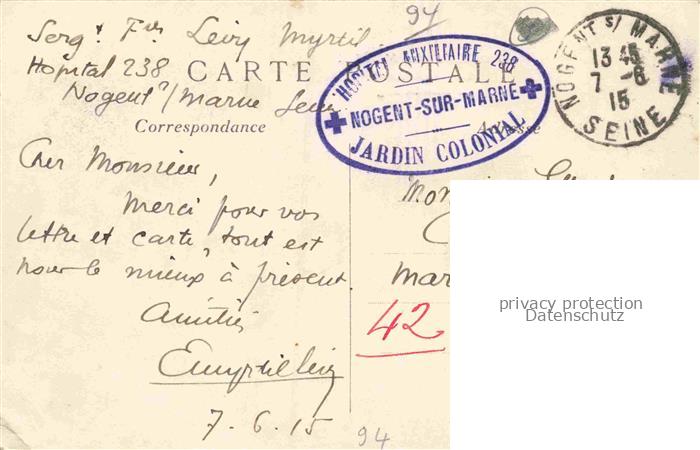 94
Serg t Fer Lévy Myrtil
Hopital 238
CARTE POSTALE
Nogent s/Marne Seine
HOPITAL AUXILIAIRE 238
NOGENT-SUR-MARNE
JARDIN COLONIAL
NOGENT S/ MARNE
13 45
7 -6
15
SEINE
Correspondance
Adresse
Cher Monsieur,
Merci pour vos
lettre et carte, tout est
pour le mieux à présent
Amitiés
7.6.15
Mar
42
94
privacy protection
Datenschutz